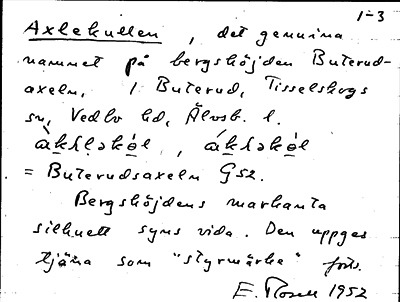 1-3
Axlekullen, det genuina
namnet på bergshöjden Buterud-
axeln, i Buterud, Tisselskogs
sn, Vedbo hd, Älvsb. l.
= Buterudsaxeln Gsz.
Bergshöjdens markanta
silhuett syns vida. Den uppges
tjäna som "styrmärke" förts.
E. Rosell 1952